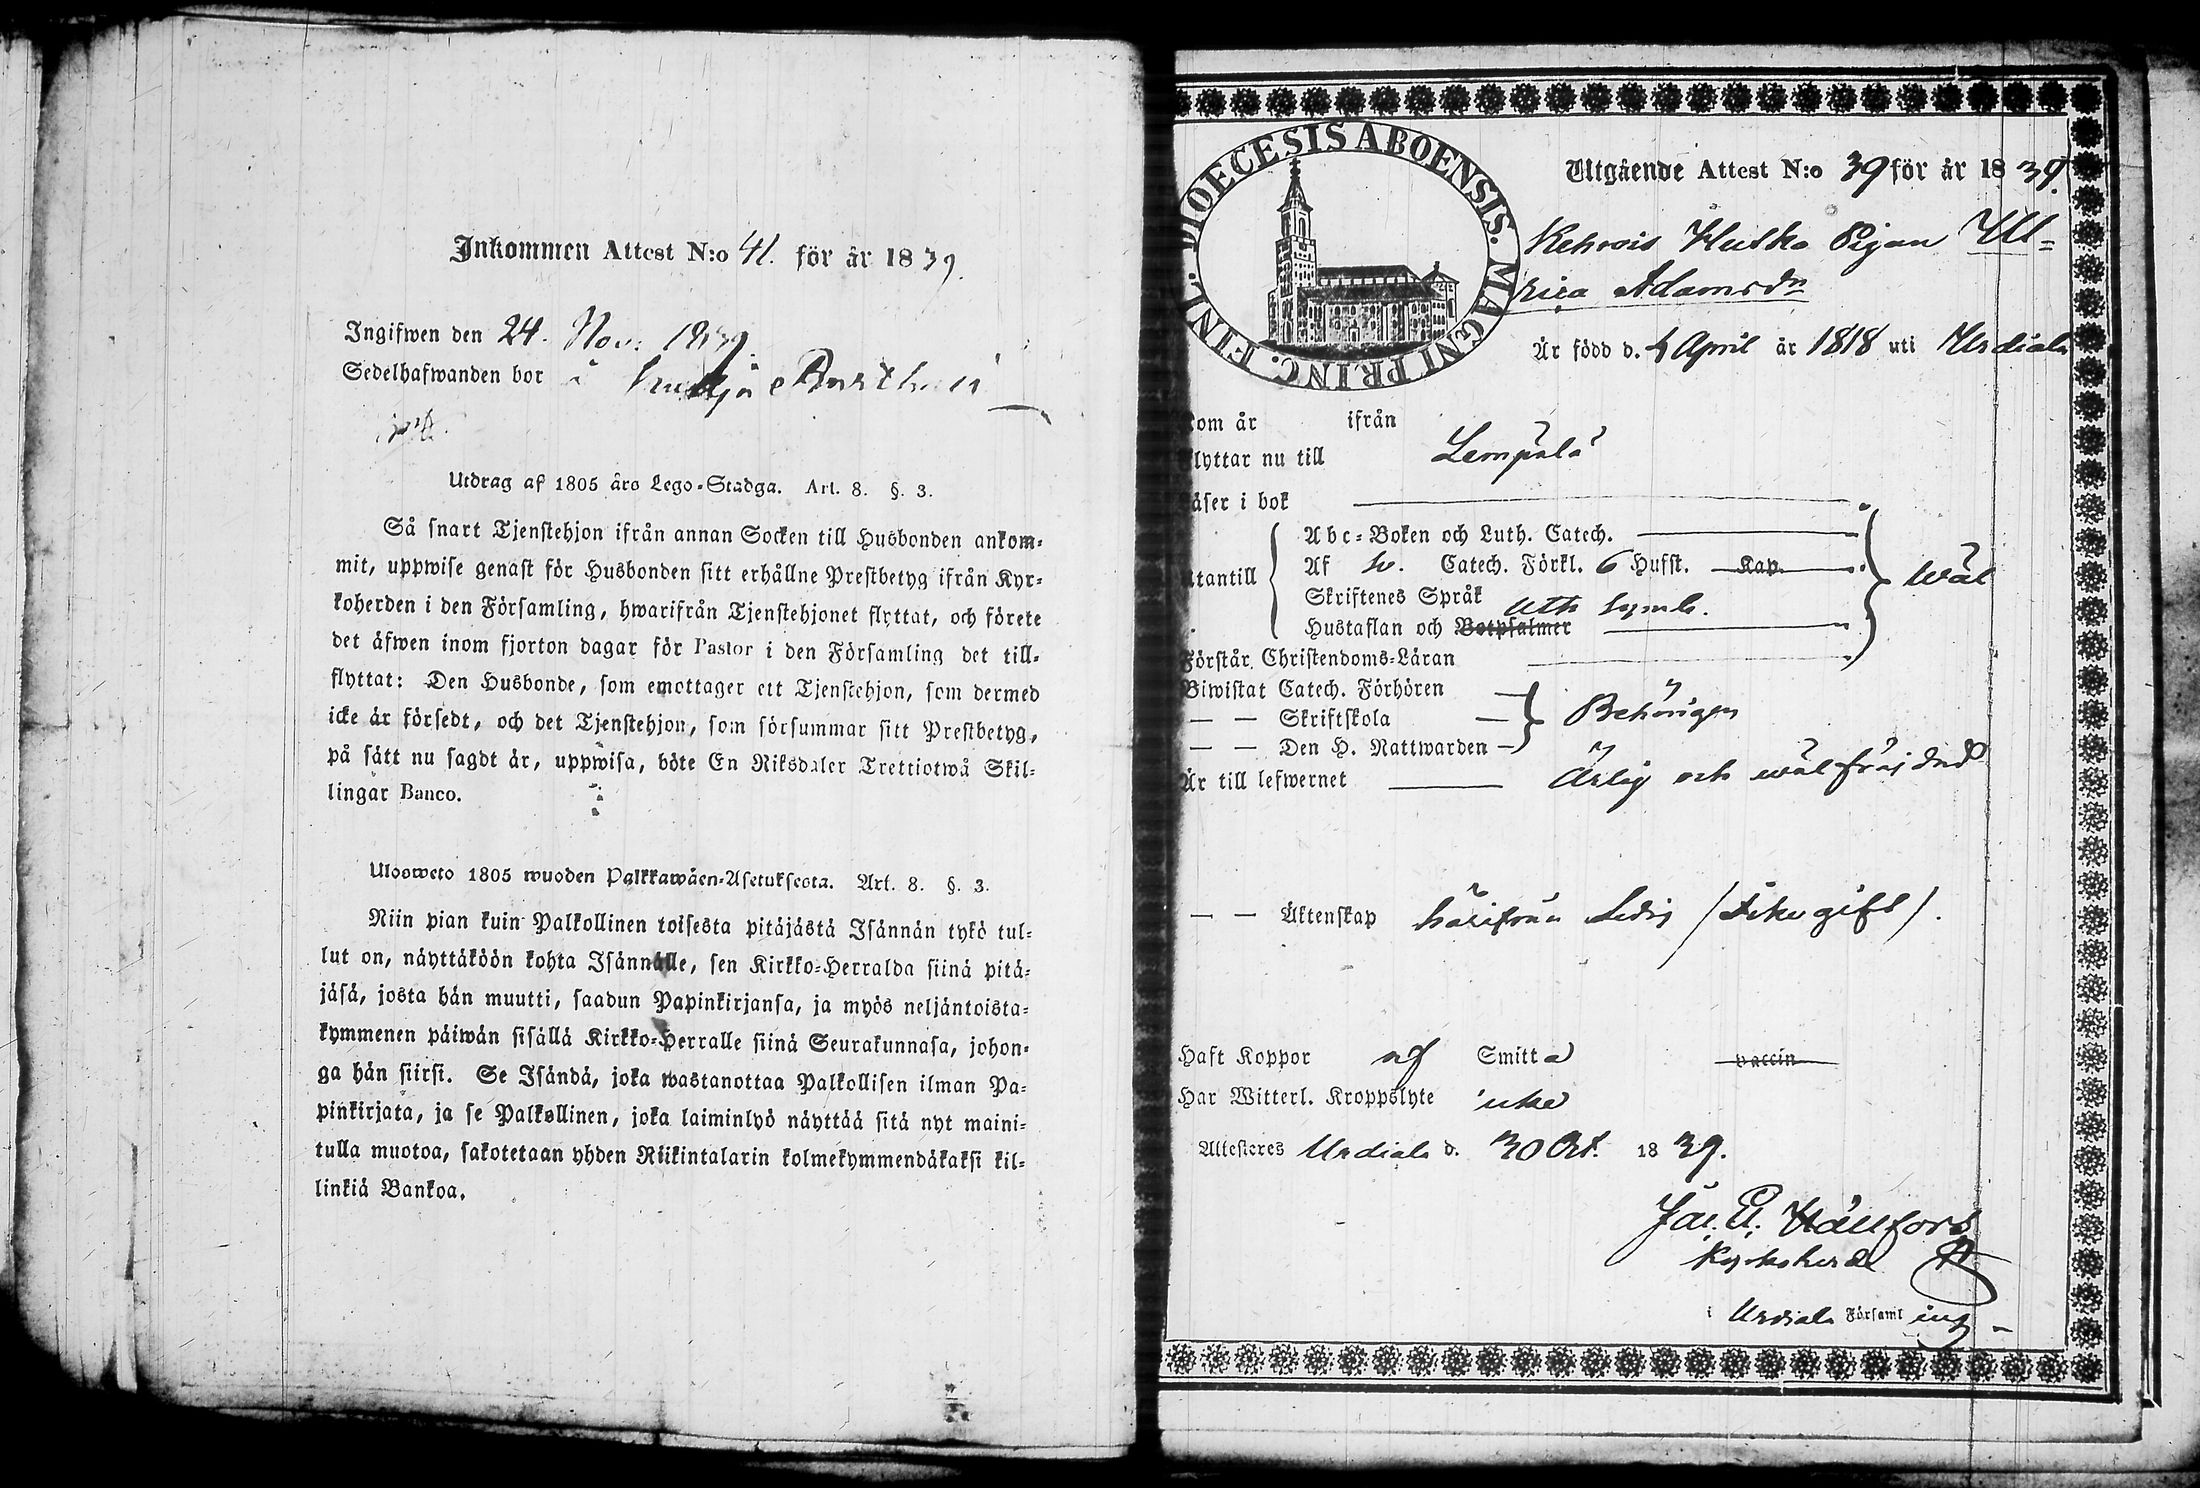 Inkommen Attest N:o 41. för år 1839.
Ingifwen den 24. Nov: 1839.
Sedelhafwanden bor i
Utdrag af 1805 års Lego-Stadga. Art. 8. §. 3.
Så snart Tjenstehjon ifrån annan Socken till Husbonden ankom-
mit, uppwise genast för Husbonden sitt erhållne Prestbetyg ifrån Kyr-
koherden i den Församling, hwarifrån Tjenstehjonet flyttat, och förete
det äfwen inom fjorton dagar för Pastor i den Församling det till-
flyttat: Den Husbonde, som emottager ett Tjenstehjon, som dermed
icke är försedt, och det Tjenstehjon, som försummar sitt Prestbetyg,
på sätt nu sagdt är, uppwisa, böte En Riksdaler Trettiotwå Skil-
lingar Banco.
Ulosweto 1805 wuoden Palkkawäen-Asetuksesta. Art. 8. §. 3.
Niin pian kuin Palkollinen toisesta pitäjästä Isännän tykö tul-
lut on, näyttäköön kohta Isännälle, sen Kirkko-Herralda siinä pitä-
jäsä, josta hän muutti, saadun Papinkirjansa, ja myös neljäntoista-
kymmenen päiwän sisällä Kirkko-Herralle siinä Seurakunnasa, johon-
ga hän siirsi. Se Isändä, joka wastanottaa Palkollisen ilman Pa-
pinkirjata, ja se Palkollinen, joka laiminlyö näyttää sitä nyt maini-
tulla muotoa, sakotetaan yhden Riikintalarin kolmekymmendäkaksi kil-
linkiä Bankoa.
DIOECESIS ABOENSIS. MAGNI PRINC. FINL.
Utgående Attest N:o 39 för år 1839.
Kehrois Hutko Pigan Ul=
rica Adamsdr
Är född d. 4 April år 1818 uti Urdiala
kom år ifrån
flyttar nu till Lempälä
Läser i bok
Utantill
Abc-Boken och Luth. Catech.
Af Sv. Catech. Förkl. 6 Hufst. Kap.
Skriftenes Språk Ath Symb.
Hustaflan och Botpsalmer
wäl
Förstår Christendoms-Läran
Biwistat Catech. Förhören
— — Skriftskola Behörigen
— — Den H. Nattwarden
Är till lefwernet Ärlig och wälfräjdad
— — Äktenskap härifrån Ledig (Icke gift).
Haft Koppor af Smitta vaccin
Har Witterl. Kroppslyte icke
Attesteras Urdiala d. 30 Oct. 1839.
Jac. E. Hällfors
Kyrkoherde
i Urdiala Församling